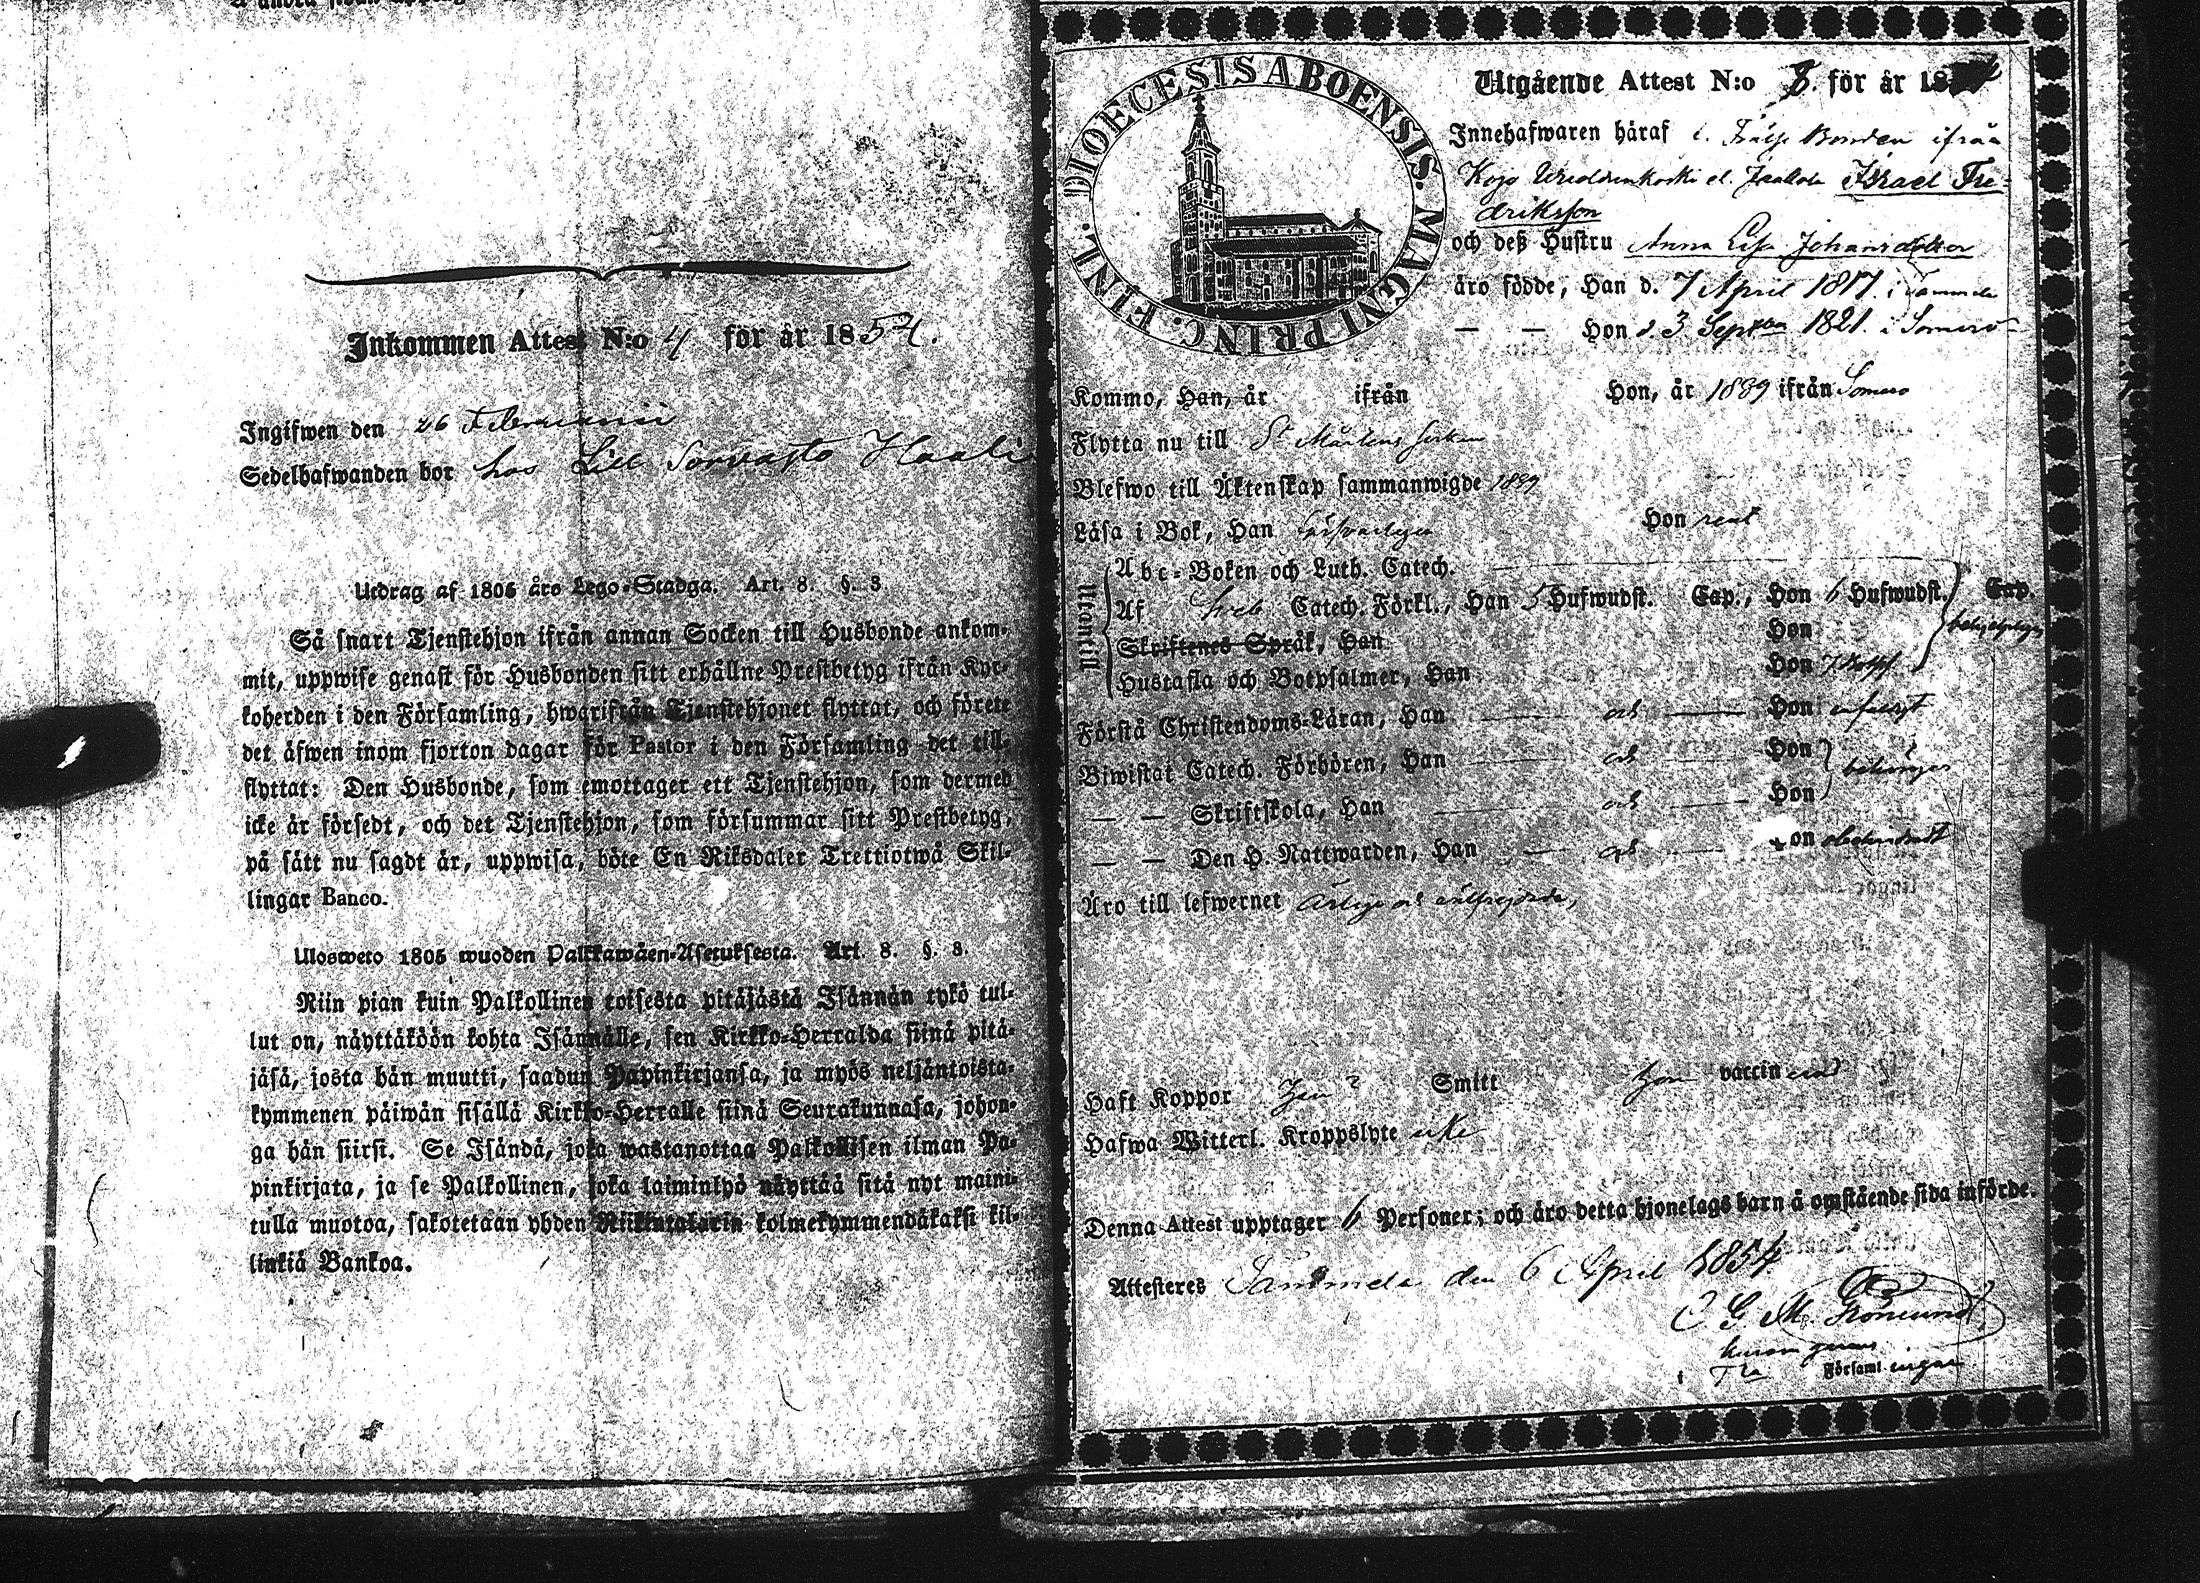 Inkommen Attest N:o 4 för år 1854.
Ingifwen den 26 Februarii
Sedelhafwanden bor hos Lill Sorvasto Haali
Utdrag af 1805 års Lego-Stadga. Art. 8. §. 8.
Så snart Tjenstehjon ifrån annan Socken till Husbonde ankom-
mit, uppwise genast för Husbonden sitt erhållne Prestbetyg ifrån Kyr-
koherden i den Församling, hwarifrån Tjenstehjonet flyttat, och förete
det äfwen inom fjorton dagar för Pastor i den Församling det till-
flyttat: Den Husbonde, som emottager ett Tjenstehjon, som dermed
icke är försedt, och det Tjenstehjon, som försummar sitt Prestbetyg,
på sätt nu sagdt är, uppwisa, böte En Riksdaler Trettiotwå Skil-
lingar Banco.
Ulosweto 1805 wuoden Palkkawäen-Asetuksesta. Art. 8. §. 8.
Niin pian kuin Palkollinen toisesta pitäjästä Isännän tykö tul-
lut on, näyttäköön kohta Isännälle, sen Kirkko-Herralda siinä pitä-
jäsä, josta hän muutti, saadun Papinkirjansa, ja myös neljäntoista-
kymmenen päiwän sisällä Kirkko-Herralle siinä Seurakunnasa, johon-
ga hän siirsi. Se Isändä, joka wastanottaa Palkollisen ilman Pa-
pinkirjata, ja se Palkollinen, joka laiminlyö näyttää sitä nyt maini-
tulla muotoa, sakotetaan yhden Riikintalarin kolmekymmendäkaksi kil-
linkiä Bankoa.
DIOECESIS ABOENSIS. MAGNI PRINC. FINL.
Utgående Attest N:o 8. för år 18
Innehafwaren häraf Bonden ifrån
Kojo Israel Fre-
driksson
och deß Hustru Anna Lisa Johansdotter
äro födde, Han d. 7 April 1817 i Tammela
— — Hon d. 3 Septbr 1821 i Somero
Kommo, Han, år ifrån Hon, år 1839 ifrån Somero
Flytta nu till St Mårtens socken
Blefwo till Äktenskap sammanwigde 1839
Läsa i Bok, Han försvarligen Hon rent
Utontill
Abc-Boken och Luth. Catech.
Af Sveb. Catech. Förkl., Han 5 Hufwudst. Cap., Hon 6 Hufwudst. Cap.
Skriftenes Språk, Han Hon
Hustafla och Botpsalmer, Han Hon 7 Botps.
Förstå Christendoms-Läran, Han — och — Hon
Biwistat Catech. Förhören, Han — och — Hon
— — Skriftskola, Han — och — Hon
— — Den H. Nattwarden, Han — och — Hon
Äro till lefwernet ärlige och välfrejdade,
Haft Koppor Smitt Hon vaccinerad
Hafwa Witterl. Kroppslyte icke
Denna Attest upptager 6 Personer; och äro detta hjonelags barn å omstående sida införde.
Attesteres Tammela den 6 April 1854
C G M. Grönlund
Församlingar